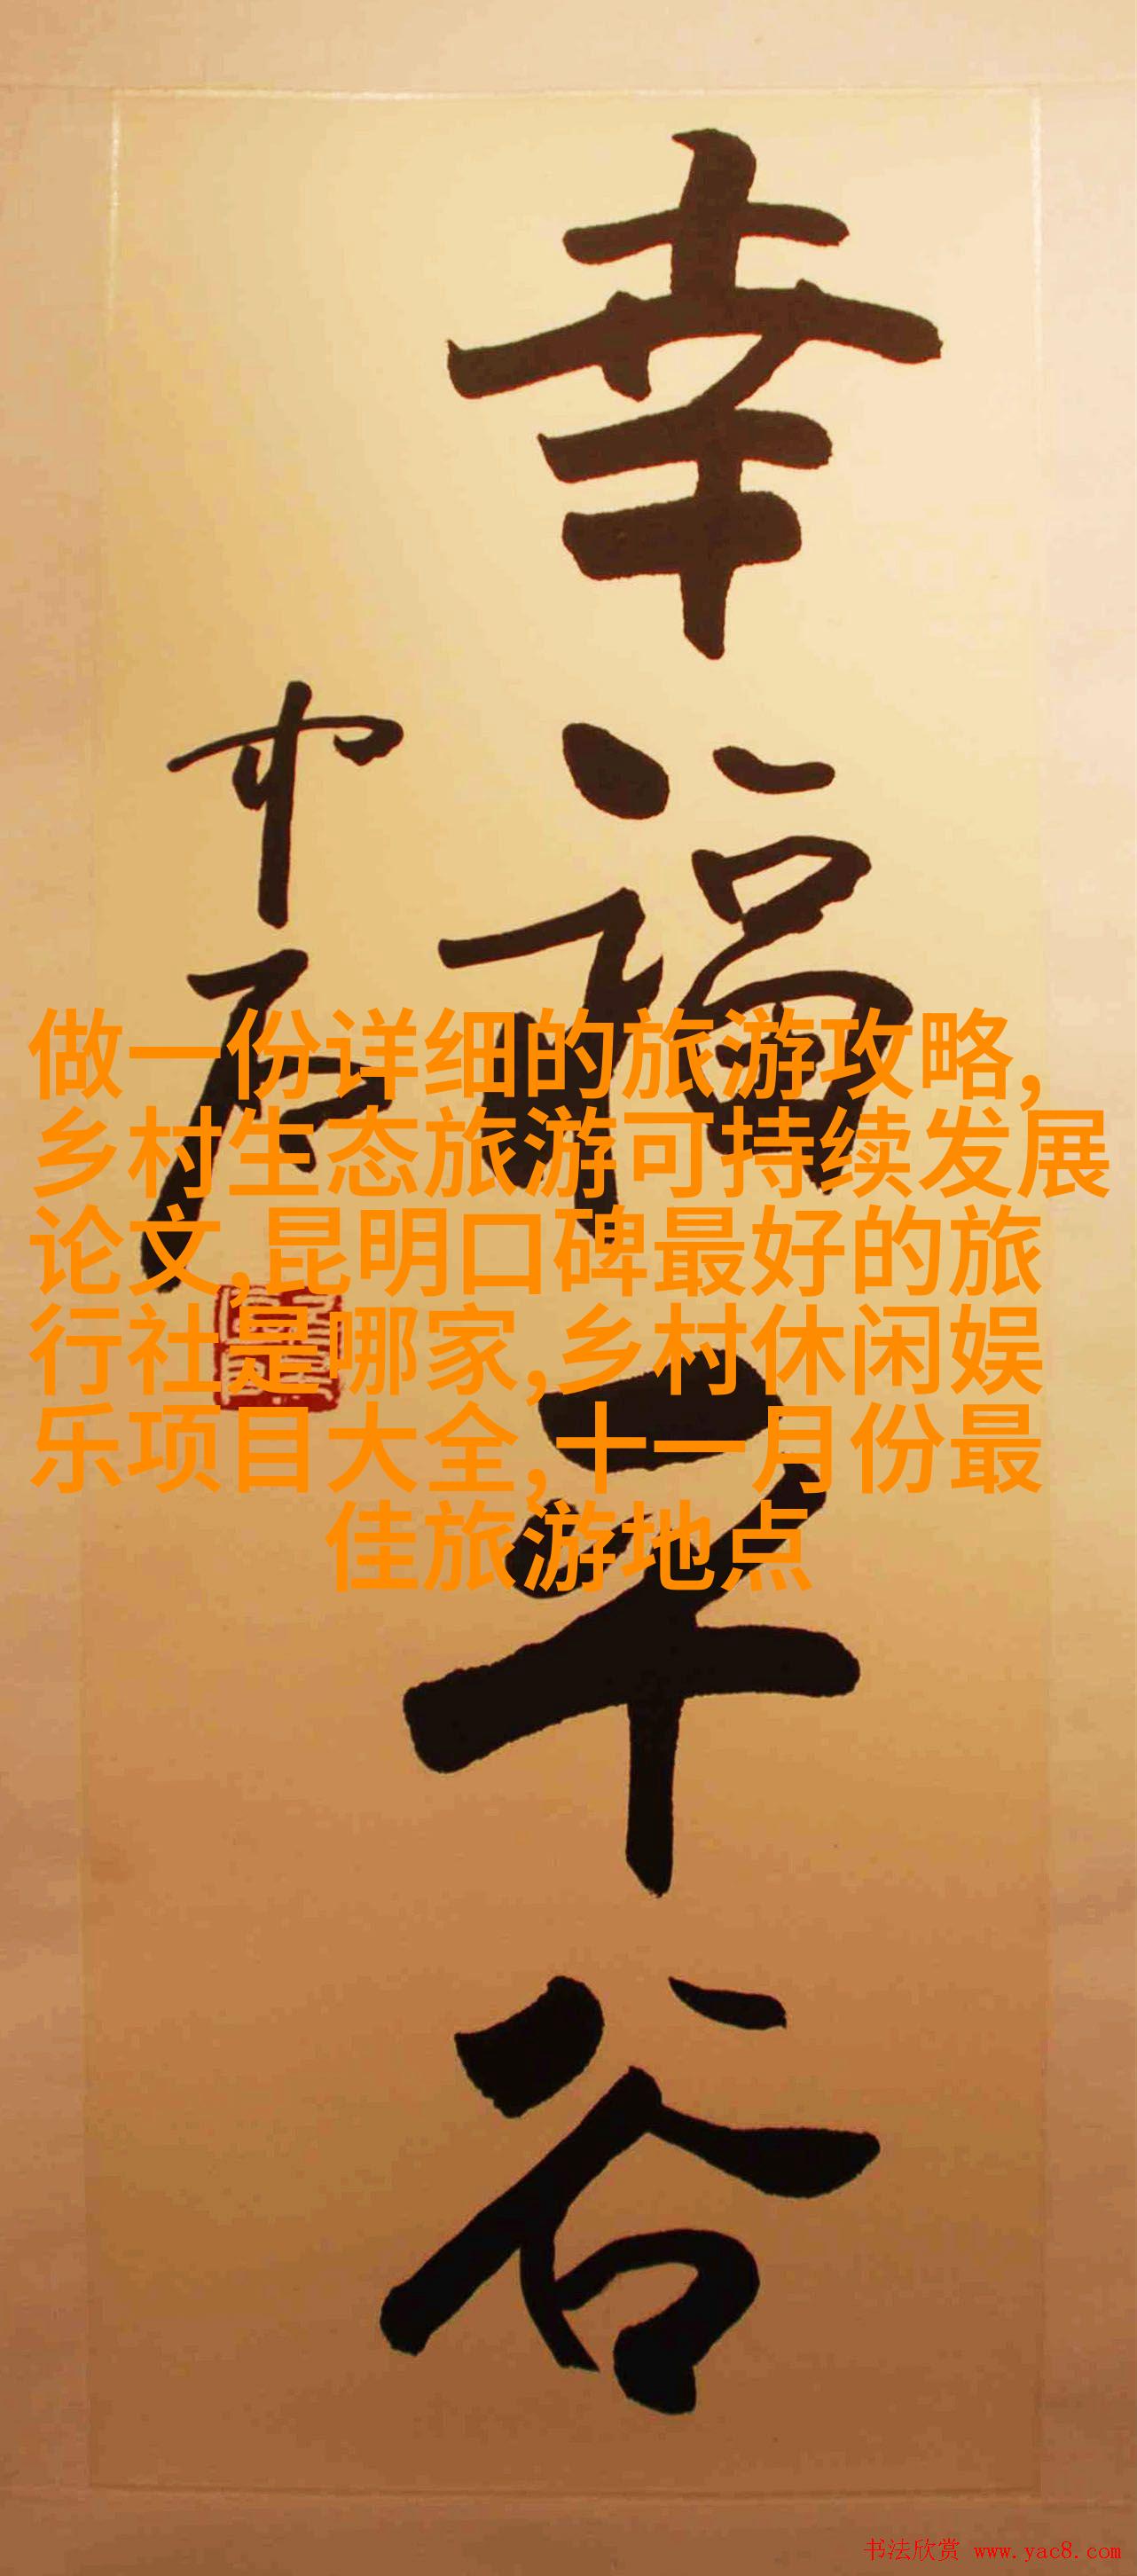 幸福平谷
做一份详细的旅游攻略,
乡村生态旅游可持续发展
论文,昆明口碑最好的旅
行社是哪家,乡村休闲娱
乐项目大全,十一月份最
佳旅游地点
书法欣赏 www.yac8.com